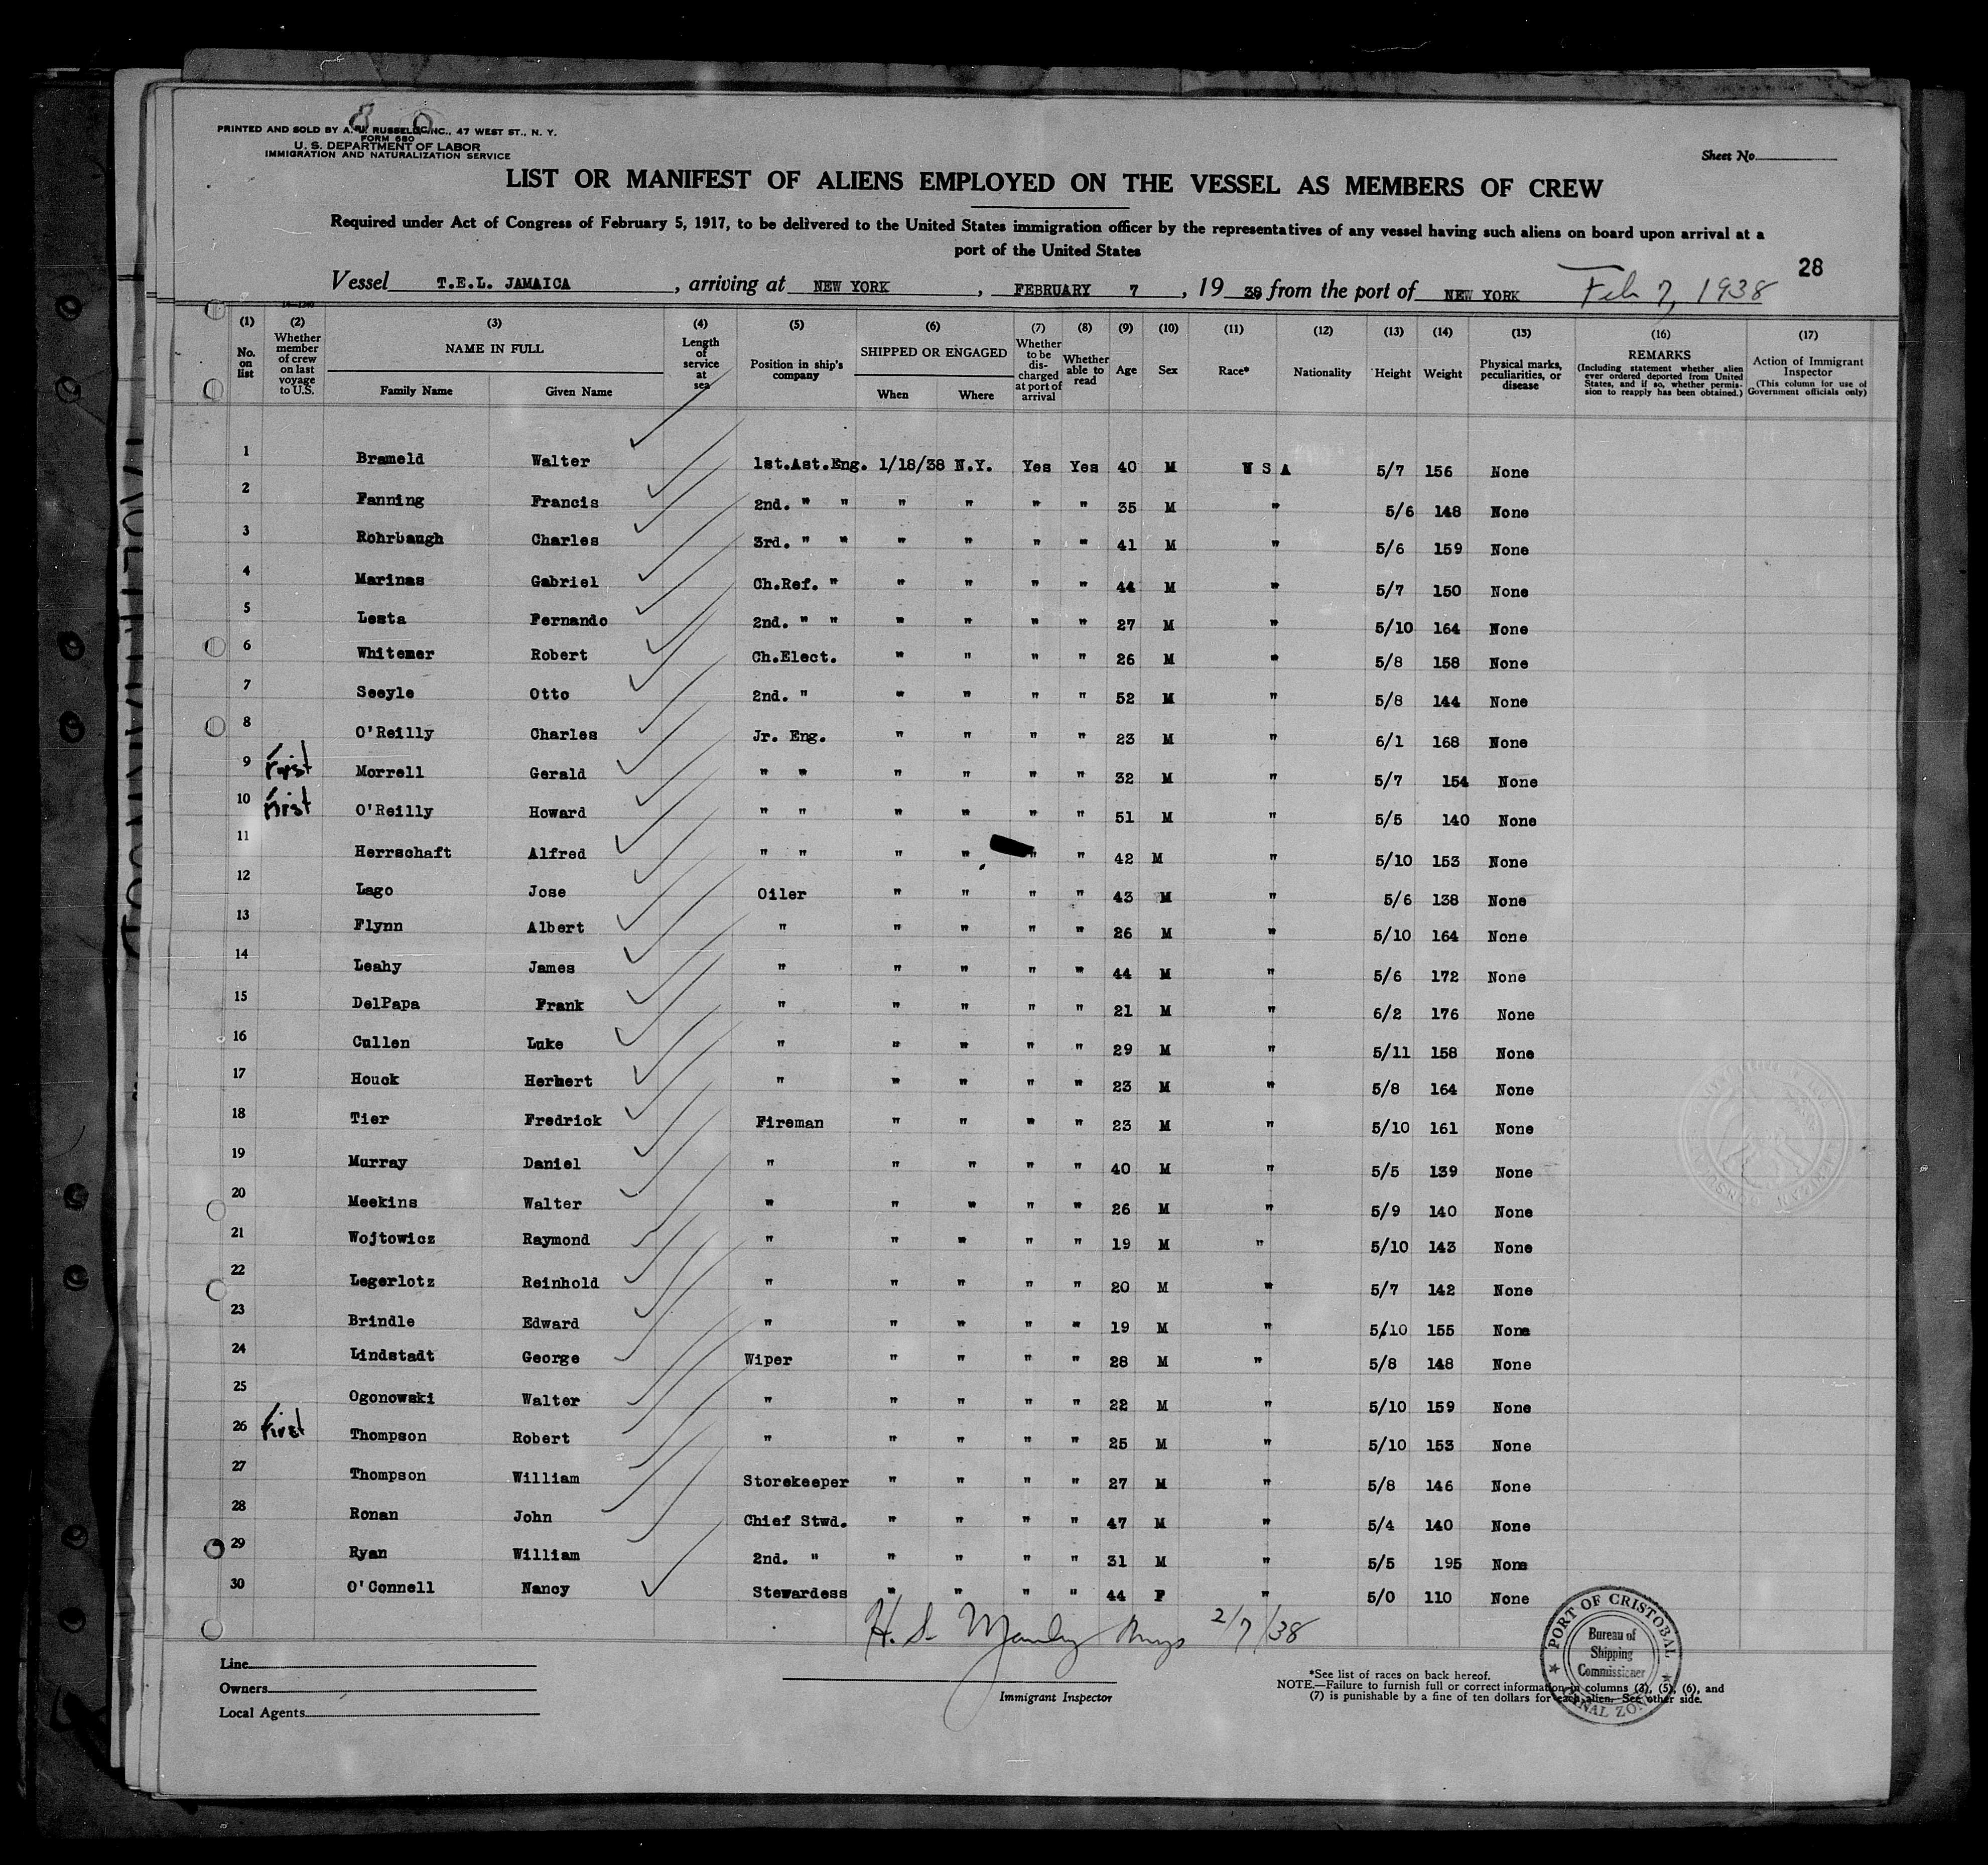 8 6
PRINTED AND SOLD BY A. U. RUSSELL, INC., 47 WEST ST., N. Y.
FORM 680
U. S. DEPARTMENT OF LABOR
IMMIGRATION AND NATURALIZATION SERVICE
Sheet No.
LIST OR MANIFEST OF ALIENS EMPLOYED ON THE VESSEL AS MEMBERS OF CREW
Required under Act of Congress of February 5, 1917, to be delivered to the United States immigration officer by the representatives of any vessel having such aliens on board upon arrival at a
port of the United States
28
Vessel T.E.L. JAMAICA, arriving at NEW YORK, FEBRUARY 7, 19 38 from the port of NEW YORK Feb 7, 1938
(1) (2) (3) (4) (5) (6) (7) (8) (9) (10) (11) (12) (13) (14) (15) (16) (17)
No. on list
Whether member of crew on last voyage to U.S.
NAME IN FULL
Family Name Given Name
Length of service at sea
Position in ship's company
SHIPPED OR ENGAGED
When Where
Whether to be discharged at port of arrival
Whether able to read
Age Sex Race* Nationality Height Weight
Physical marks, peculiarities, or disease
REMARKS
(Including statement whether alien ever ordered deported from United States, and if so, whether permission to reapply has been obtained.)
Action of Immigrant Inspector
(This column for use of Government officials only)
1 Brameld Walter 1st.Ast.Eng. 1/18/38 N.Y. Yes Yes 40 M U S A 5/7 156 None
2 Fanning Francis 2nd. " " " " " " 35 M " 5/6 148 None
3 Rohrbaugh Charles 3rd. " " " " " " 41 M " 5/6 159 None
4 Marinas Gabriel Ch.Ref. " " " " " 44 M " 5/7 150 None
5 Lesta Fernando 2nd. " " " " " " 27 M " 5/10 164 None
6 Whitemer Robert Ch.Elect. " " " " 26 M " 5/8 158 None
7 Seeyle Otto 2nd. " " " " " 52 M " 5/8 144 None
8 O'Reilly Charles Jr. Eng. " " " " 23 M " 6/1 168 None
9 First Morrell Gerald " " " " " " 32 M " 5/7 154 None
10 First O'Reilly Howard " " " " " " 51 M " 5/5 140 None
11 Herrschaft Alfred " " " " " " 42 M " 5/10 153 None
12 Lago Jose Oiler " " " " 43 M " 5/6 138 None
13 Flynn Albert " " " " " 26 M " 5/10 164 None
14 Leahy James " " " " " 44 M " 5/6 172 None
15 DelPapa Frank " " " " " 21 M " 6/2 176 None
16 Cullen Luke " " " " " 29 M " 5/11 158 None
17 Houck Herbert " " " " " 23 M " 5/8 164 None
18 Tier Fredrick Fireman " " " " 23 M " 5/10 161 None
19 Murray Daniel " " " " " 40 M " 5/5 139 None
20 Meekins Walter " " " " " 26 M " 5/9 140 None
21 Wojtowicz Raymond " " " " " 19 M " 5/10 143 None
22 Legerlotz Reinhold " " " " " 20 M " 5/7 142 None
23 Brindle Edward " " " " " 19 M " 5/10 155 None
24 Lindstadt George Wiper " " " " 28 M " 5/8 148 None
25 Ogonowski Walter " " " " " 22 M " 5/10 159 None
26 First Thompson Robert " " " " " 25 M " 5/10 153 None
27 Thompson William Storekeeper " " " " 27 M " 5/8 146 None
28 Ronan John Chief Stwd. " " " " 47 M " 5/4 140 None
29 Ryan William 2nd. " " " " " 31 M " 5/5 195 None
30 O'Connell Nancy Stewardess " " " " 44 F " 5/0 110 None
H. S. 2/7/38
Line
Owners
Local Agents
Immigrant Inspector
*See list of races on back hereof.
NOTE.—Failure to furnish full or correct information in columns (3), (5), (6), and
(7) is punishable by a fine of ten dollars for each alien. See other side.
PORT OF CRISTOBAL
Bureau of
Shipping
Commissioner
CANAL ZONE